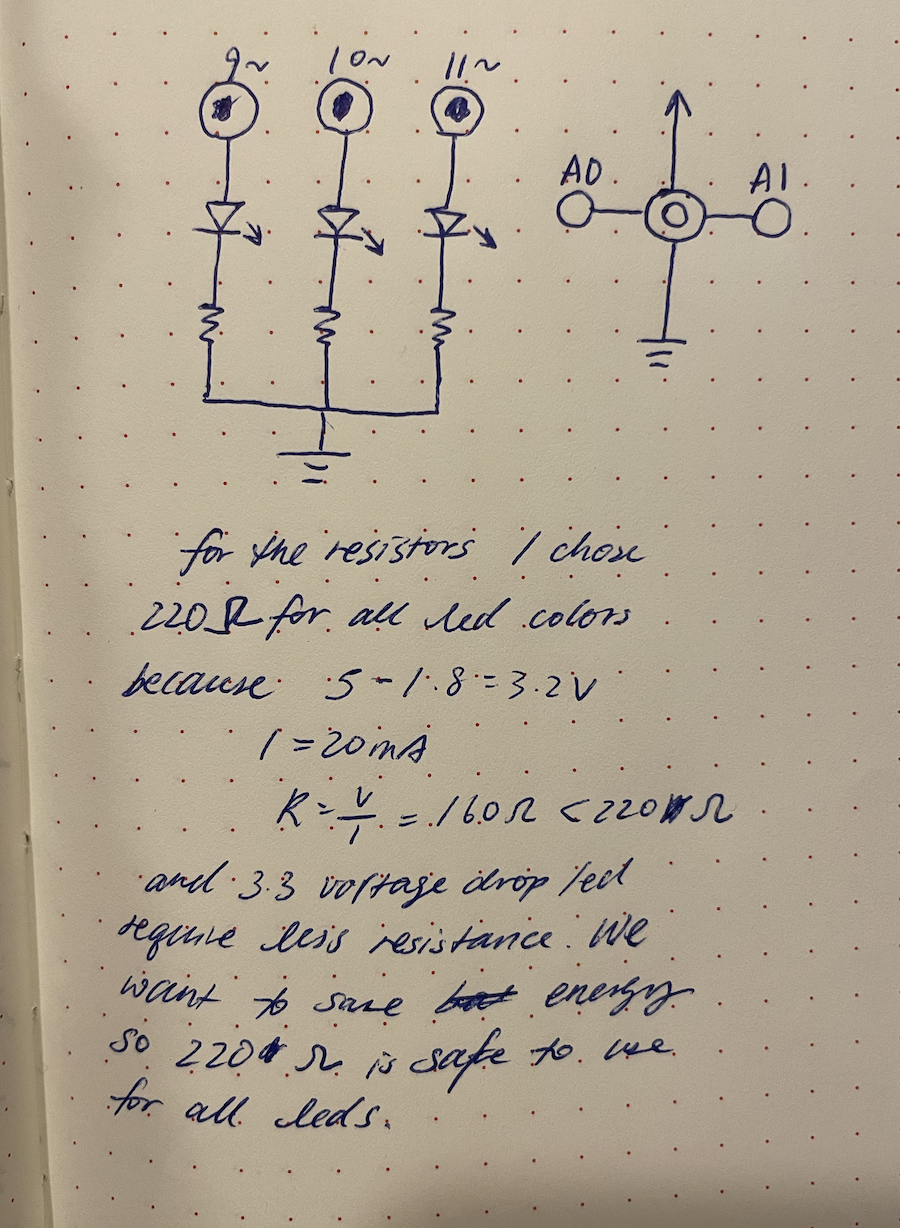 9~ 10~ 11~
A0 A1
for the resistors I chose
220Ω for all led colors
because 5-1.8=3.2V
I=20mA
R=V/I=160Ω<220Ω
and 3.3 voltage drop led
require less resistance. We
want to save energy
so 220Ω is safe to use
for all leds.